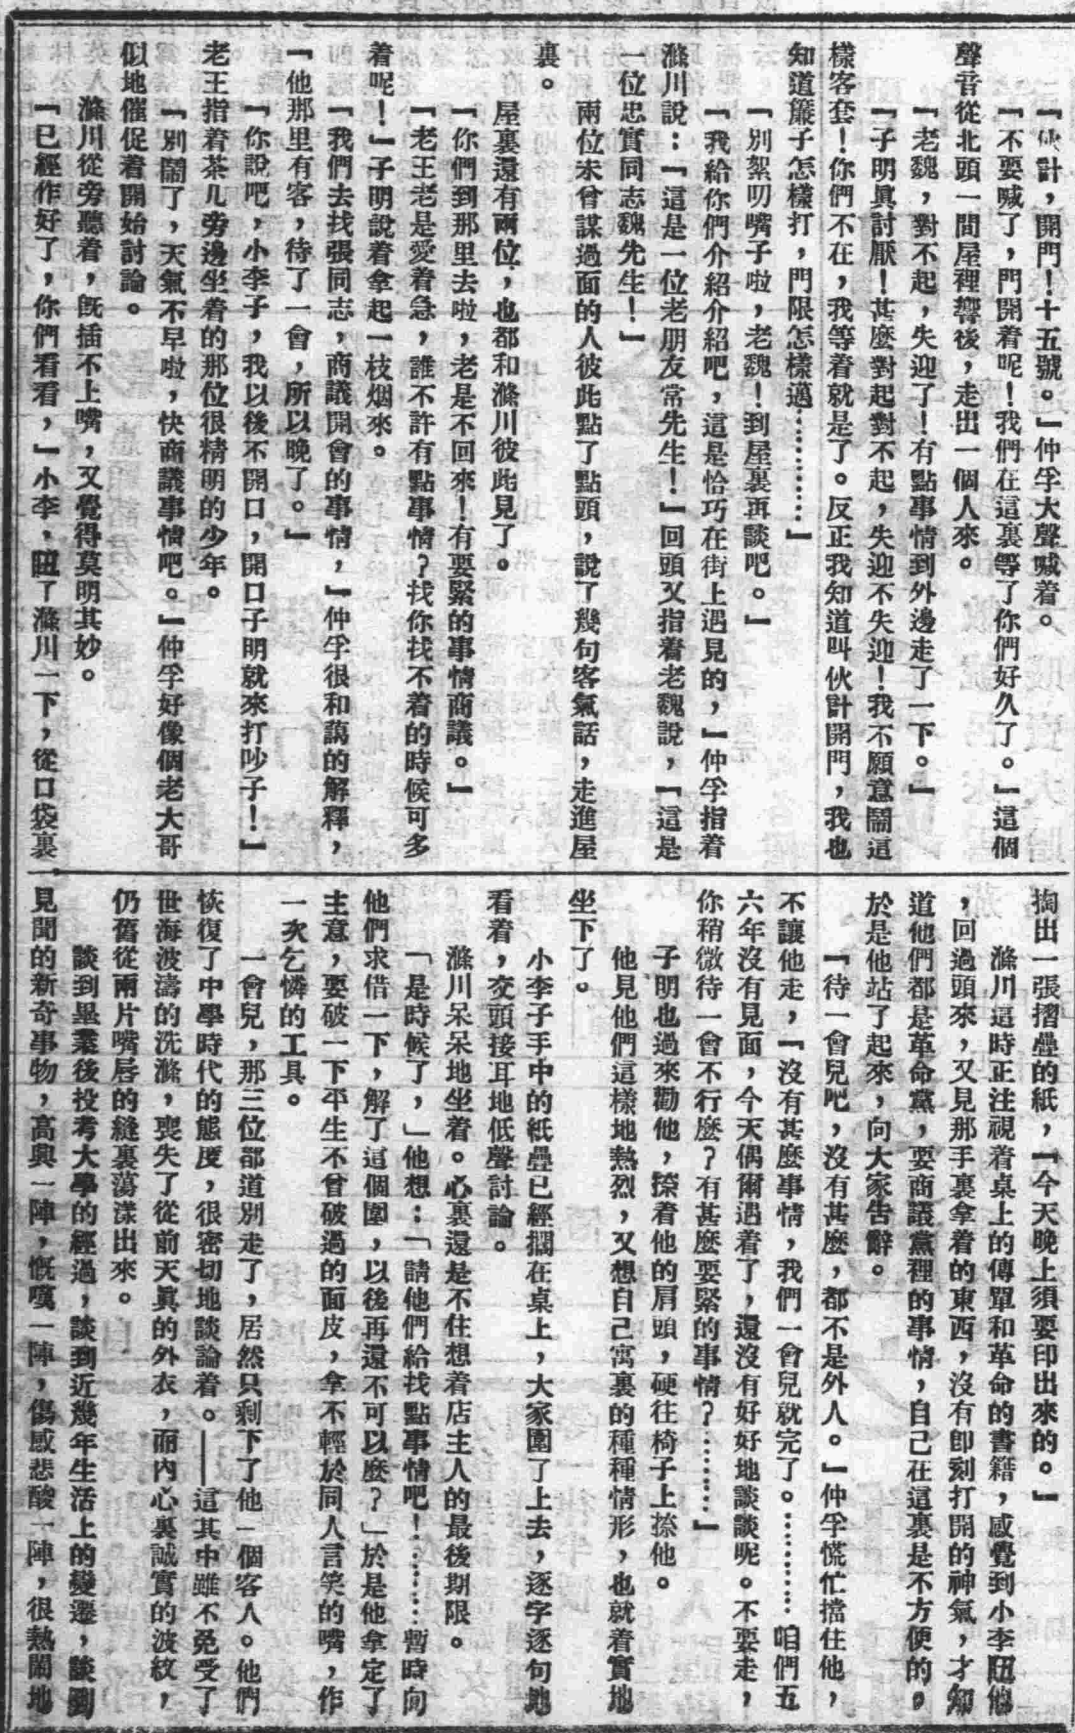 『伙計，開門！十五號。』仲孚大聲喊着。
『不要喊了，門開着呢！我們在這裏等了你們好久了。』這個
聲音從北頭一間屋裡響後，走出一個人來。
『老魏，對不起，失迎了！有點事情到外邊走了一下。』
『子明眞討厭！甚麼對起對不起，失迎不失迎！我不願意鬧這
樣客套！你們不在，我等着就是了。反正我知道叫伙計開門，我也
知道簾子怎樣打，門限怎樣邁…………』
『別絮叨嘴子啦，老魏！到屋裏再談吧。』
『我給你們介紹介紹吧，這是恰巧在街上遇見的，』仲孚指着
滌川說：『這是一位老朋友常先生！』回頭又指着老魏說，『這是
一位忠實同志魏先生！』
兩位未曾謀過面的人彼此點了點頭，說了幾句客氣話，走進屋
裏。
屋裏還有兩位，也都和滌川彼此見了。
『你們到那里去啦，老是不回來！有要緊的事情商議。』
『老王老是愛着急，誰不許有點事情？找你找不着的時候可多
着呢！』子明說着拿起一枝烟來。
『我們去找張同志，商議開會的事情，』仲孚很和藹的解釋，
『他那里有客，待了一會，所以晚了。』
『你說吧，小李子，我以後不開口，開口子明就來打吵子！』
老王指着茶几旁邊坐着的那位很精明的少年。
『別鬧了，天氣不早啦，快商議事情吧。』仲孚好像個老大哥
似地催促着開始討論。
滌川從旁聽着，旣插不上嘴，又覺得莫明其妙。
『已經作好了，你們看看，』小李，瞅了滌川一下，從口袋裏
掏出一張摺疊的紙，『今天晚上須要印出來的。』
滌川這時正注視着桌上的傳單和革命的書籍，感覺到小李瞅他
，回過頭來，又見那手裏拿着的東西，沒有卽刻打開的神氣，才知
道他們都是革命黨，要商議黨裡的事情，自己在這裏是不方便的，
於是他站了起來，向大家吿辭。
『待一會兒吧，沒有甚麼，都不是外人。』仲孚慌忙擋住他，
不讓他走，『沒有甚麼事情，我們一會兒就完了。………… 咱們五
六年沒有見面，今天偶爾遇着了，還沒有好好地談談呢。不要走，
你稍微待一會不行麼？有甚麼要緊的事情？………』
子明也過來勸他，捺着他的肩頭，硬往椅子上捺他。
他見他們這樣地熱烈，又想自己寓裏的種種情形，也就着實地
坐下了。
小李子手中的紙疊已經擱在桌上，大家圍了上去，逐字逐句地
看着，交頭接耳地低聲討論。
滌川呆呆地坐着。心裏還是不住想着店主人的最後期限。
「是時候了，」他想：「請他們給找點事情吧！……暫時向
他們求借一下，解了這個圍，以後再還不可以麼？」於是他拿定了
主意，要破一下平生不曾破過的面皮，拿不輕於同人言笑的嘴，作
一次乞憐的工具。
一會兒，那三位都道別走了，居然只剩下了他一個客人。他們
恢復了中學時代的態度，很密切地談論着。——這其中雖不免受了
世海波濤的洗滌，喪失了從前天眞的外衣，而內心裏誠實的波紋，
仍舊從兩片嘴唇的縫裏蕩漾出來。
談到畢業後投考大學的經過，談到近幾年生活上的變遷，談到
見聞的新奇事物，高興一陣，慨嘆一陣，傷感悲酸一陣，很熱鬧地